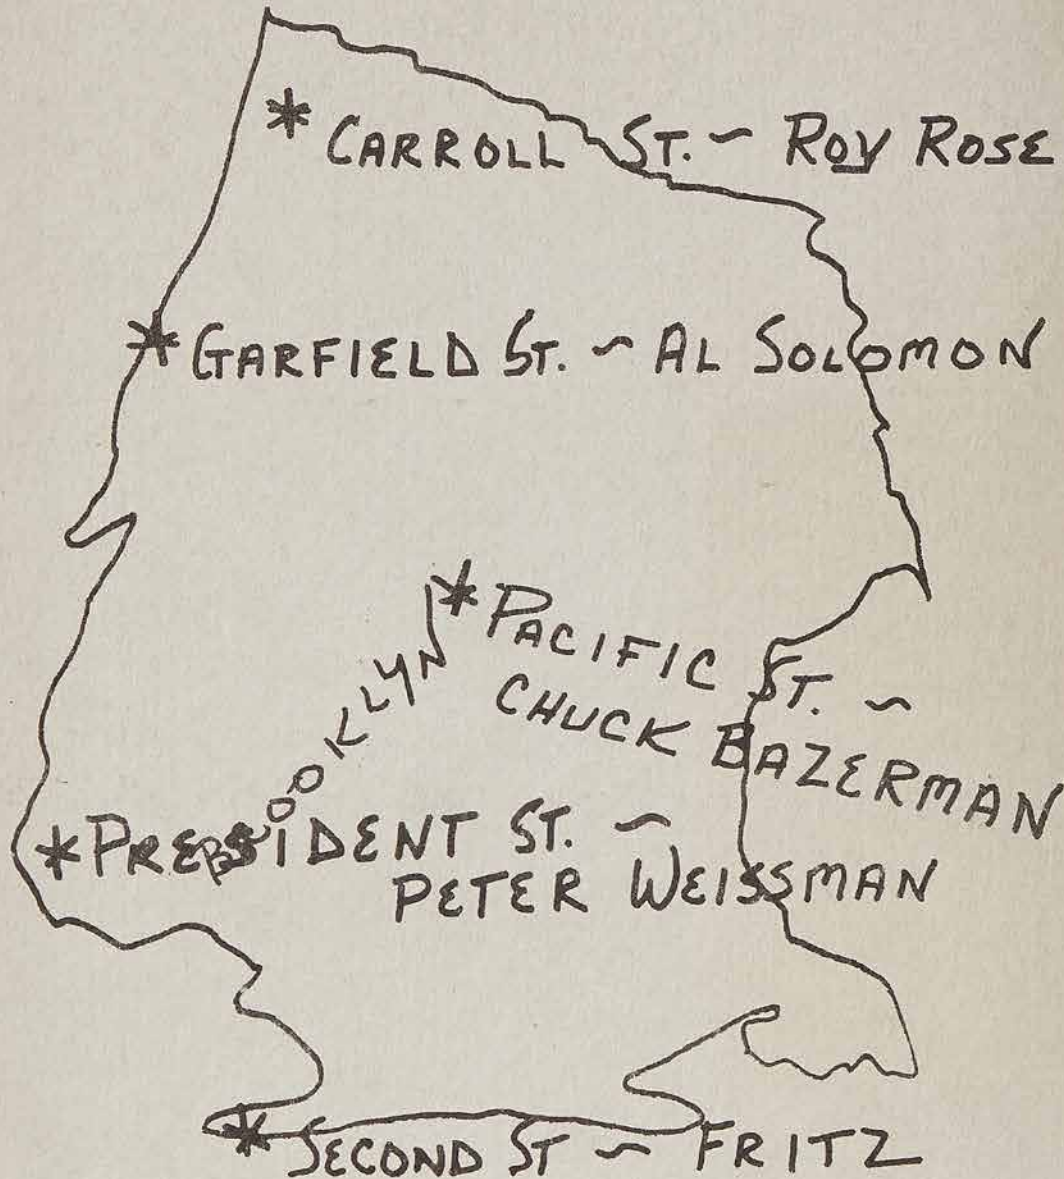 * CARROLL ST. ~ ROY ROSE
* GARFIELD ST. ~ AL SOLOMON
* PACIFIC ST. ~
CHUCK BAZERMAN
BROOKLYN
* PRESIDENT ST. ~
PETER WEISSMAN
* SECOND ST ~ FRITZ